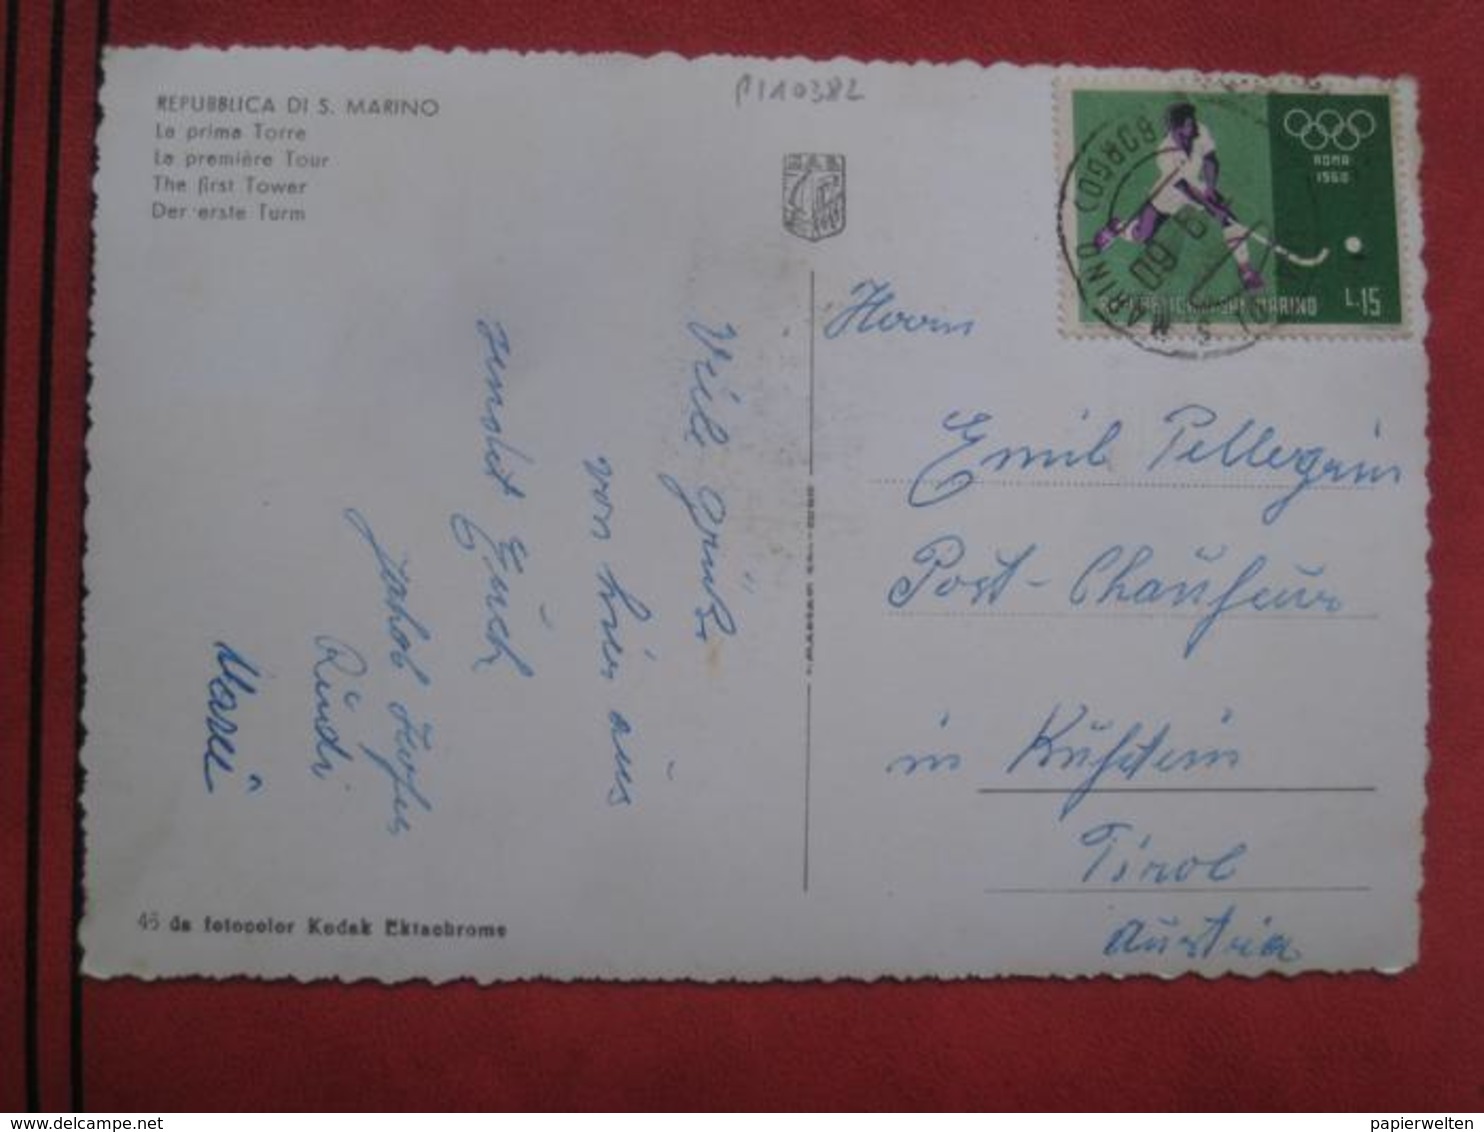 REPUBBLICA DI S. MARINO
La prima Torre
La première Tour
The first Tower
Der erste Turm
P110382
ROMA
1960
REPUBBLICA DI SAN MARINO L.15
BORGO
S. MARINO
60
Herrn
Emil Pellegrin
Post-Chaufeur
in Kufstein
Tirol
Austria
Viele grüße
von hier aus
sendet Euch
Jakob
Rudi
46 da fotocolor Kodak Ektachrome
papierwelten